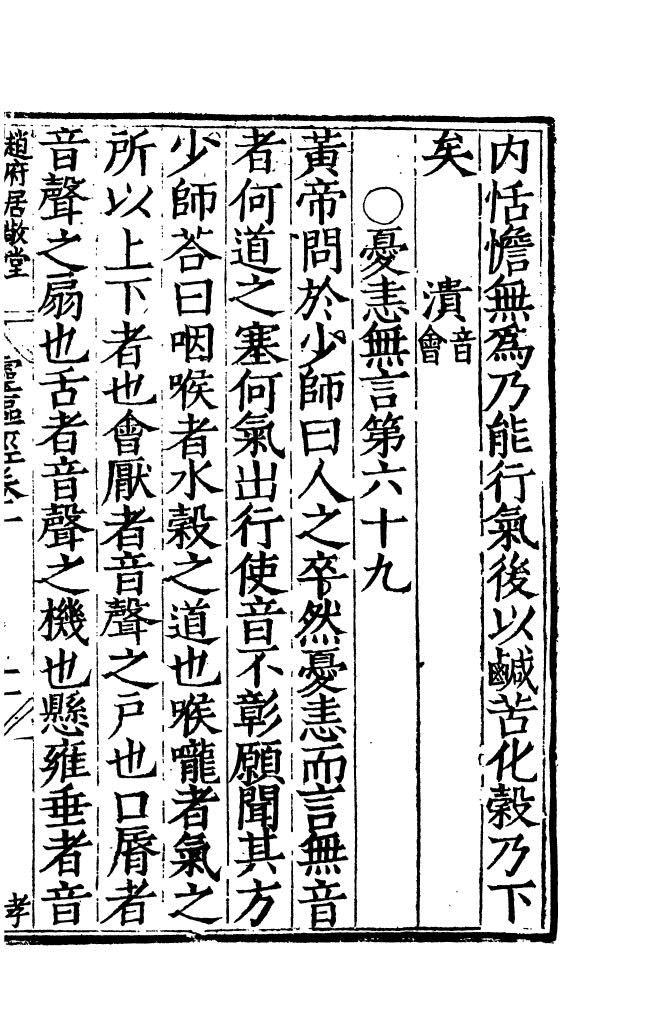 内恬憺無爲乃能行氣後以鹹苦化榖乃下
矣　　潰音會
○憂恚無言第六十九
黃帝問於少師曰人之卒然憂恚而言無音
者何道之塞何氣出行使音不彰願聞其方
少師荅曰咽喉者水榖之道也喉嚨者氣之
所以上下者也會厭者音聲之戶也口脣者
音聲之扇也舌者音聲之機也懸雍垂者音
趙府居敬堂
孝